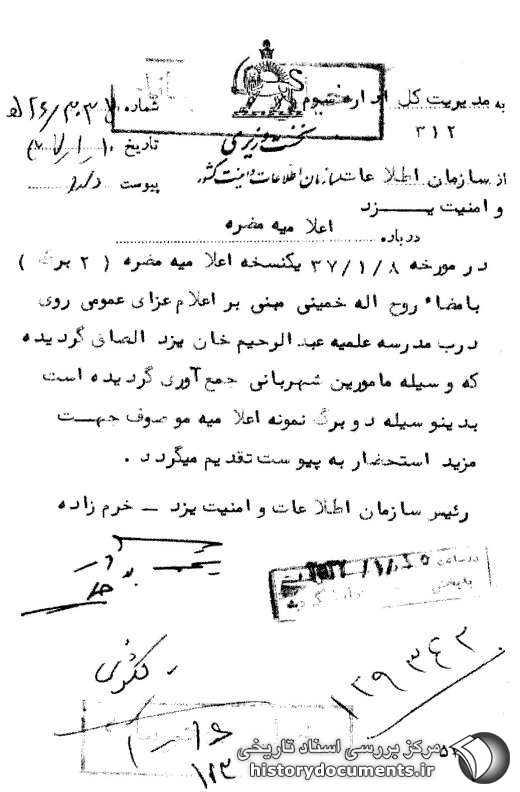 به مدیریت کل اداره سوم
۳۱۲
شماره
تاریخ
پیوست دارد
نخست وزیری
سازمان اطلاعات و امنیت کشور
از سازمان اطلاعات
و امنیت یزد
درباره اعلامیه مضره
در مورخه ۳۷/۱/۸ یکنسخه اعلامیه مضره ( ۲ برگ )
بامضاء روح اله خمینی مبنی بر اعلام عزای عمومی روی
درب مدرسه علمیه عبدالرحیم خان یزد الصاق گردیده
که وسیله مامورین شهربانی جمع آوری گردیده است
بدینوسیله دو برگ نمونه اعلامیه موصوف جهت
مزید استحضار به پیوست تقدیم میگردد .
رئیس سازمان اطلاعات و امنیت یزد - خرم زاده
۱۲۹۳۴۳
مرکز بررسی اسناد تاریخی
historydocuments.ir